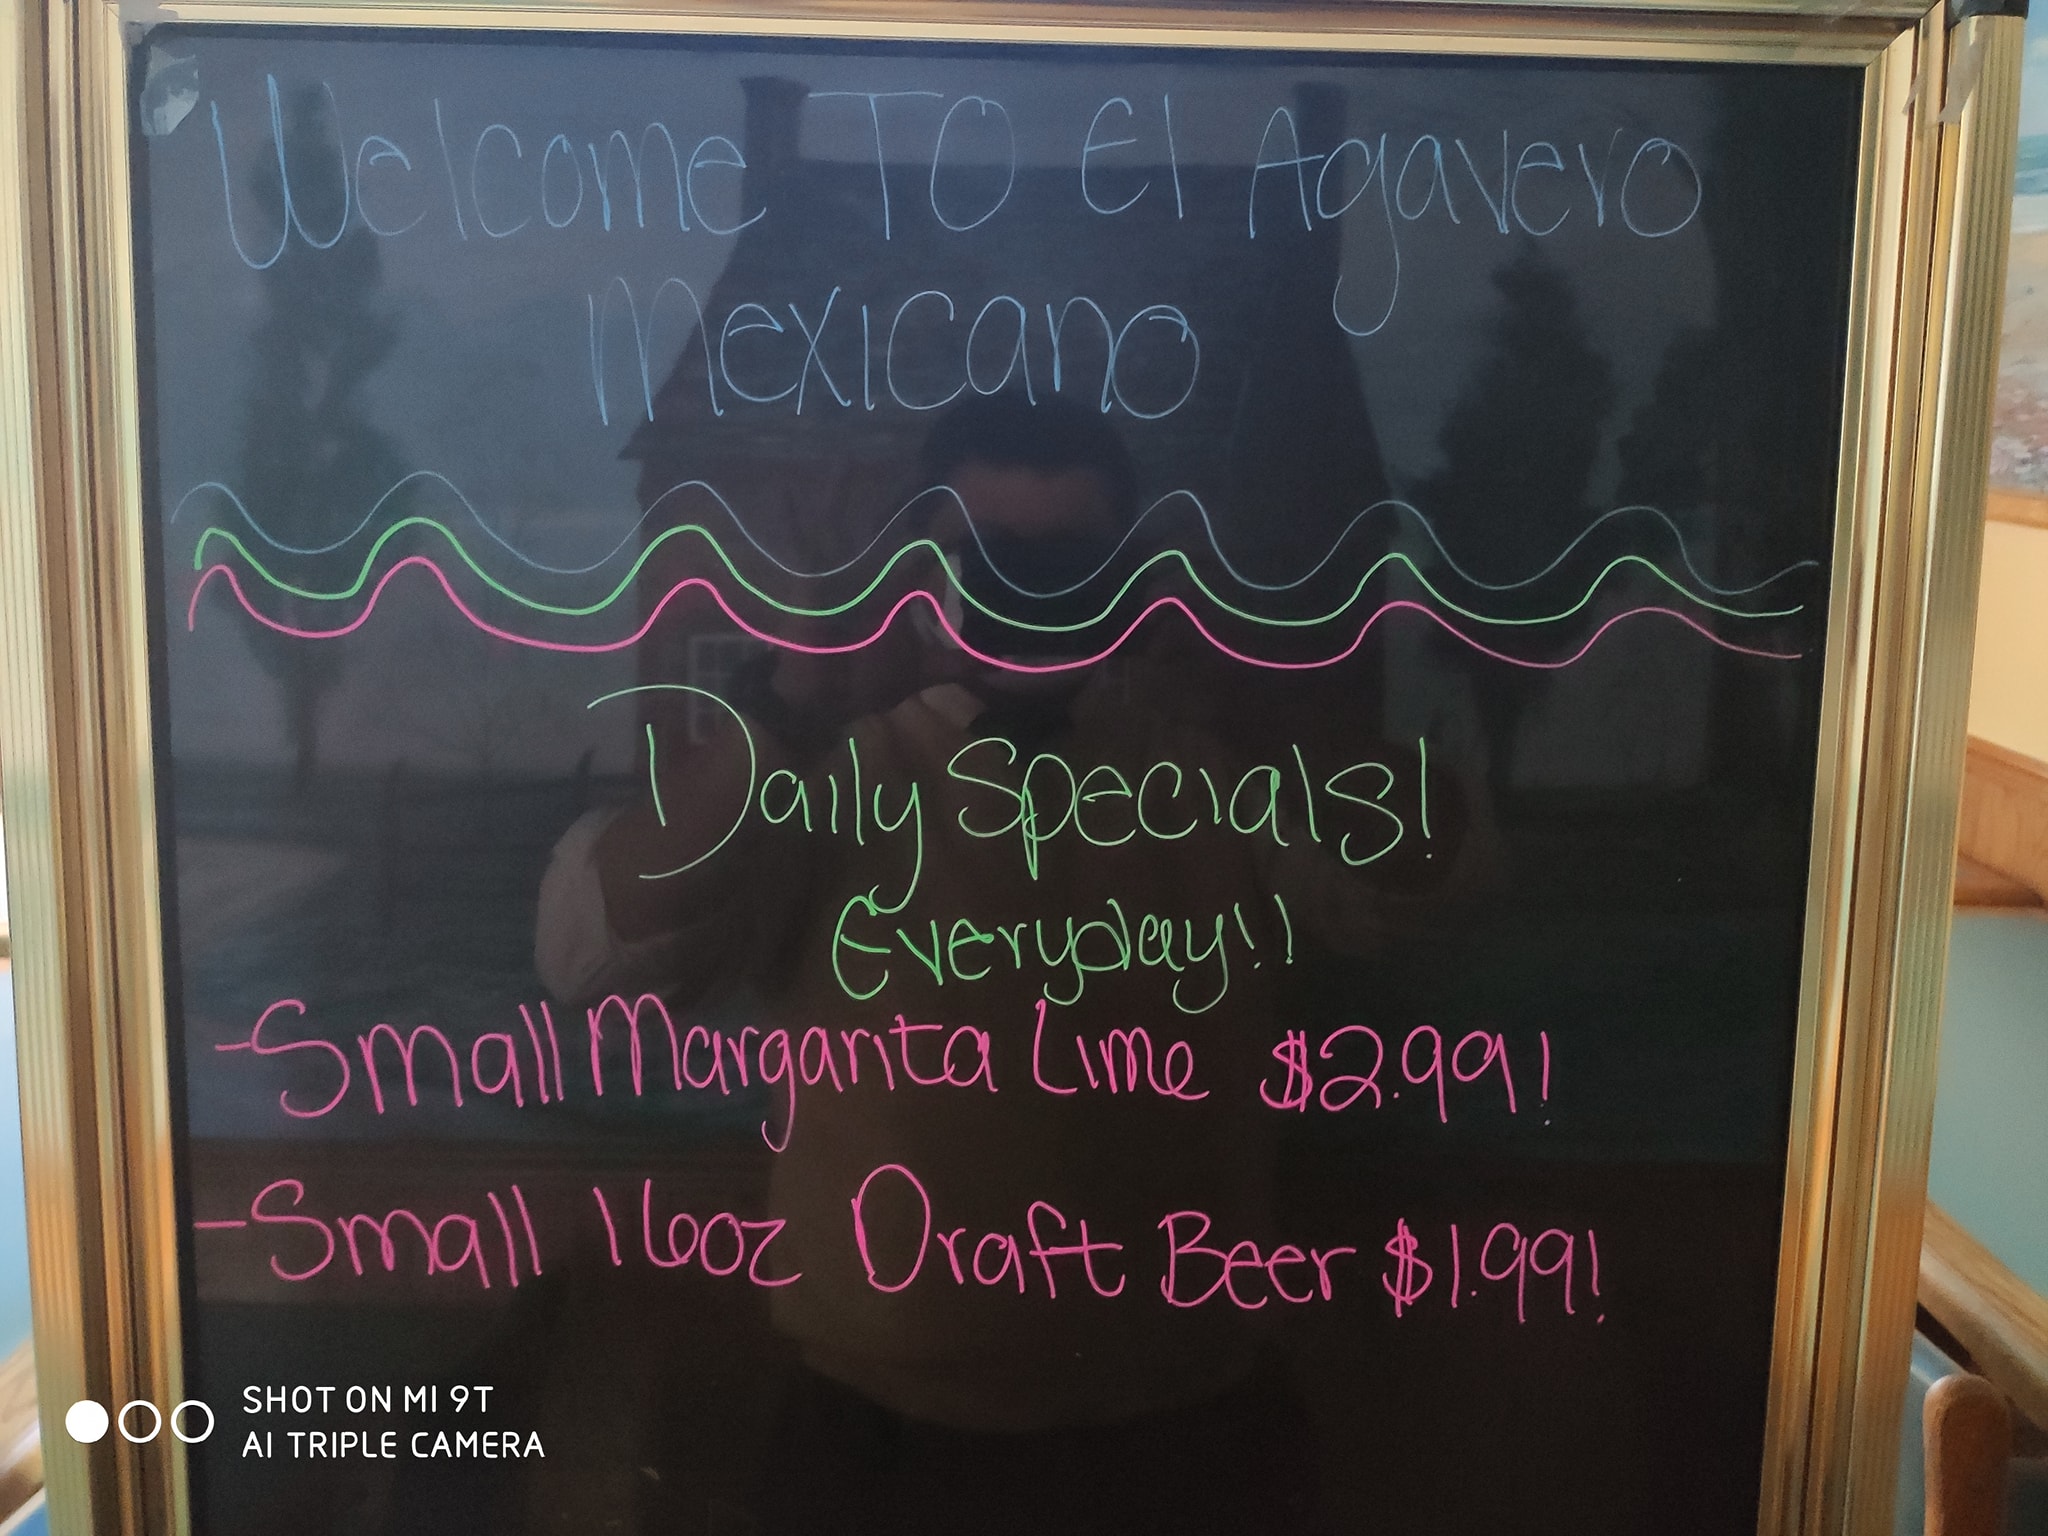 Welcome TO El Agavero
Mexicano
Daily Specials!
Everyday!!
-Small Margarita Lime $2.99!
-Small 16oz Draft Beer $1.99!
SHOT ON MI 9T
AI TRIPLE CAMERA